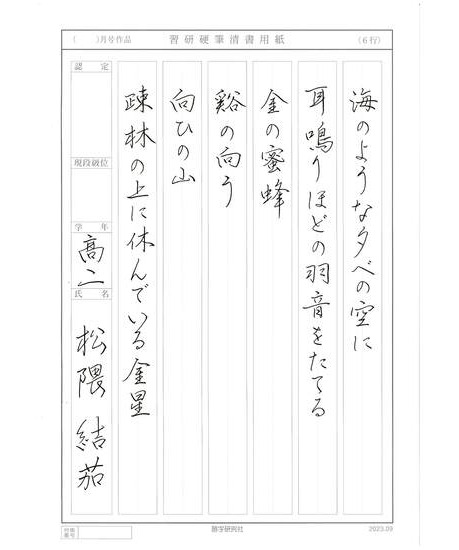 (　　)月号作品
習研硬筆清書用紙
(6行)
海のような夕べの空に
耳鳴りほどの羽音をたてる
金の蜜蜂
谿の向う
向ひの山
疎林の上に休んでいる金星
認定
現段級位
学年
高二
氏名
松隈 結茄
付票番号
2023.09